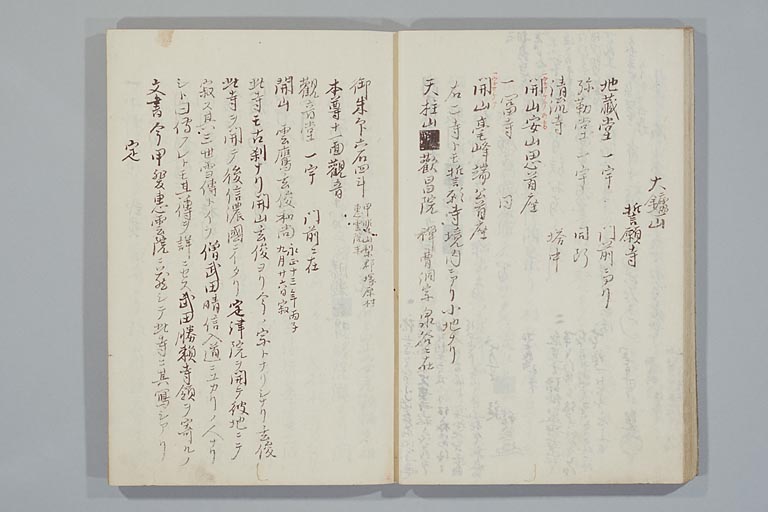 大鑪山
誓願寺
地蔵堂 一宇 門前ニアリ
弥勒堂 一宇 同所
清流寺 塔中
開山安山思首座
一富寺 同
開山臺峰端首座
右二寺トモ誓願寺境内ニアリ小地ナリ
天柱山 歡昌院 禅曹洞宗 泉谷ニ在
御朱印六石四斗 甲州山梨郡塚原村 恵雲院末
本尊十一面觀音
觀音堂 一宇 門前ニ在
開山 雲鷹玄俊和尚 永正十三年丙子 九月廿六日寂
此寺モ古刹ナリ開山玄俊ヨリ今ノ宗トナリシナリ玄俊
此寺ヲ開テ後信濃國ニイタリ定津院ヲ開テ彼地ニテ
寂ス其三世雪傳トイフ僧武田晴信入道ニユカリノ人ナリ
シト口傳フレトモ其傳ヲ詳ニセス武田勝頼寺領ヲ寄ルノ
文書今甲斐恵雲院ニ蔵シテ此寺ニ其寫シアリ
定